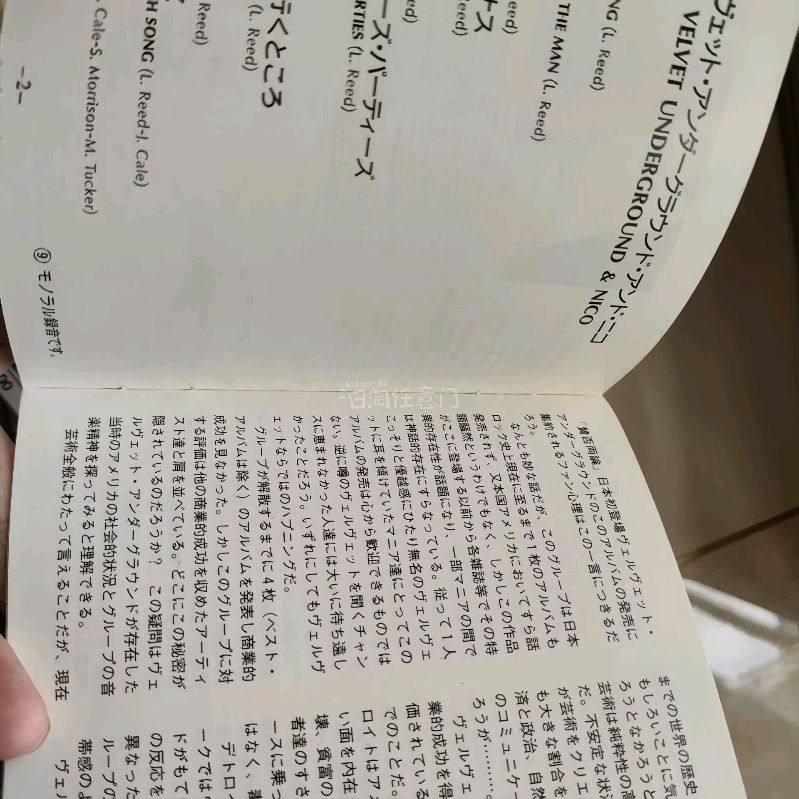 ヴェット・アンダーグラウンド・アンド・ニコ
VELVET UNDERGROUND & NICO
NG (L. Reed)
THE MAN (L. Reed)
ナス
eed)
Reed)
ーズ・パーティーズ
RTIES (L. Reed)
行くところ
(L. Reed)
Reed)
H SONG (L. Reed-J. Cale)
Cale-S. Morrison-M. Tucker)
⑨ モノラル録音です。
-2-
「賛否両論」日本初登場ヴェルヴェット・
アンダーグラウンドのこのアルバムの発売に
集約されるファン心理はこの一言につきるだ
ろう。
なんとも妙な話だが、このグループは日本
ロック史上現在に至るまで1枚のアルバムも
発売されず、又本国アメリカにおいてすら話
題騒然というわけでもなく、しかしこの作品
がここに登場する以前から各雑誌等でその特
異的存在性が話題になり、一部マニアの間で
は神話的存在にすらなっている。従って1人
こっそりと優越感にひたり無名のヴェルヴェ
ットに耳を傾けていたマニア達にとってこの
アルバムの発売は心から歓迎できるものでは
ない。逆に噂のヴェルヴェットを聞くチャン
スに恵まれなかった人達には大いに待ち遠し
かったことだろう。いずれにしてもヴェルヴ
ェットならではのハプニングだ。
グループが解散するまでに4枚（ベスト・
アルバムは除く）のアルバムを発表し商業的
成功を見なかった。しかしこのグループに対
する評価は他の商業的成功を収めたアーティ
スト達と肩を並べている。どこにこの秘密が
隠されているのだろうか？ この疑問はヴェ
ルヴェット・アンダーグラウンドが存在した
当時のアメリカの社会的状況とグループの音
楽精神を探ってみると理解できる。
芸術全般にわたって言えることだが、現在
までの世界の歴史
もしろいことに気
ろうとなかろうと
芸術は純粋性の高
だ。不安定な状況
が芸術をクリエ
も大きな割合を
済と政治、自然
のコミュニケー
ろうが………。
ヴェルヴェ
業的成功を得
価されている
でのことだ。
ロイトはアメ
い面を内在
壊、貧富の
者達のすさ
ースに乗っ
はなく、書
デトロイ
ークではe
ドがもて
の反応を
異なった
ループの
帯感のよ
ヴェル